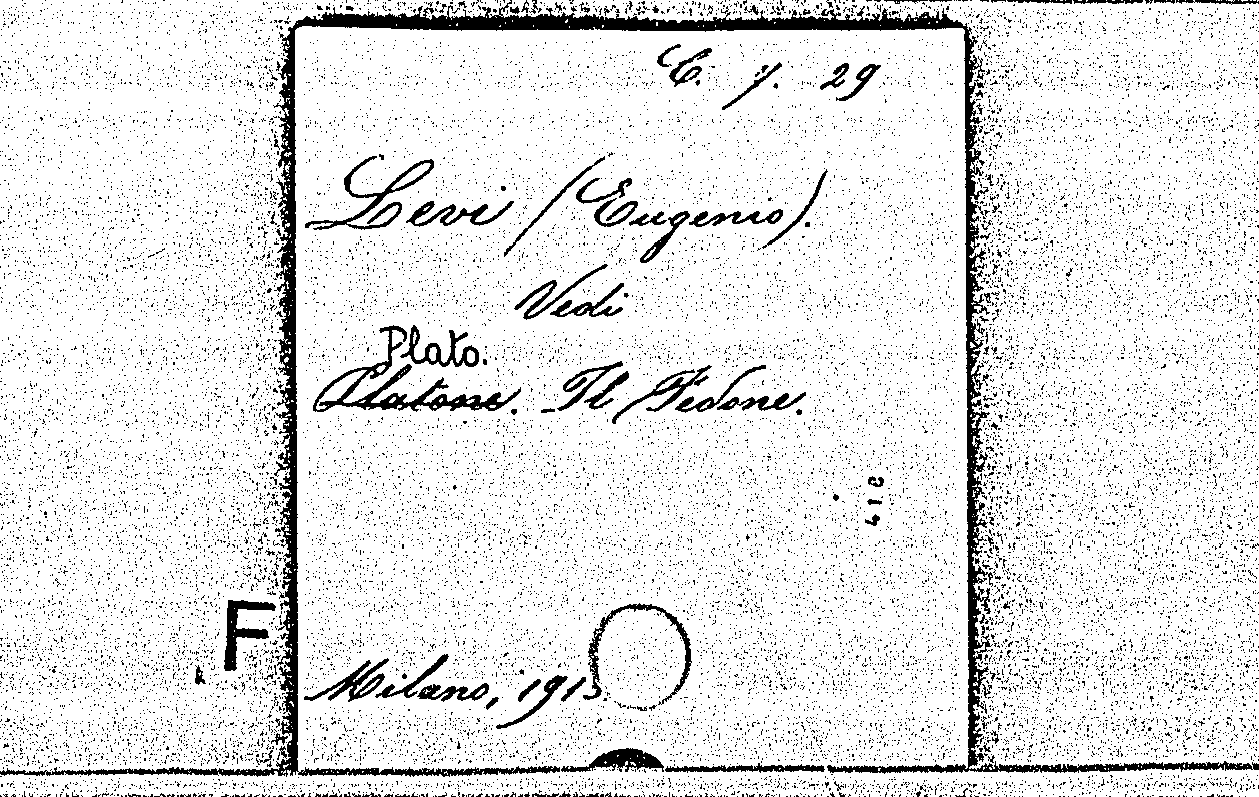 C. 7. 29
Levi (Eugenio).
Vedi
Plato.
Platone. Il Fedone.
41C
F
Milano, 1915